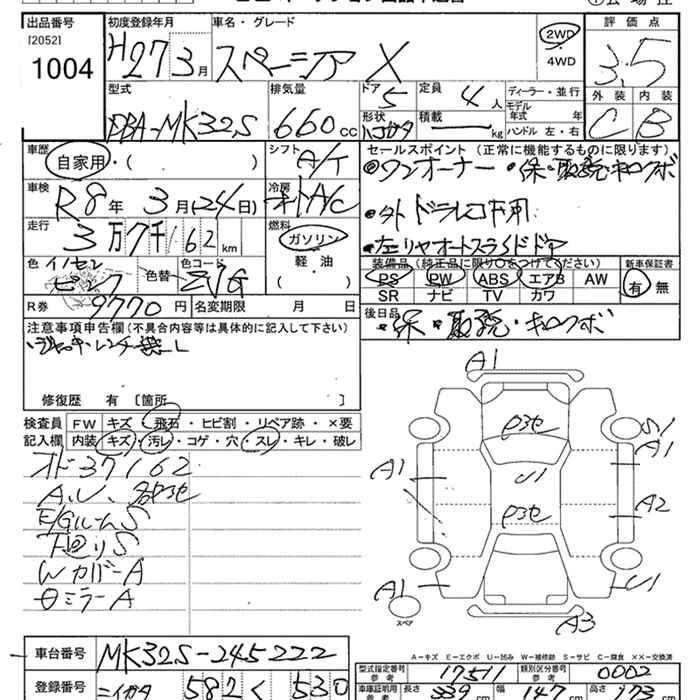 出品番号 初度登録年月 車名・グレード 評価点
[2052]
1004 H27 3月 スペーシア X 2WD 4WD 3.5
外装 内装
C B
型式 排気量 ドア 定員 ディーラー・並行
DBA-MK32S 660cc 5 4人 モデル年式 年
形状 積載 kg ハンドル 左・右
車歴 シフト セールスポイント (正常に機能するものに限ります)
自家用・( ) A/T ◎ワンオーナー ・保・取説・キロクボ
車検 冷房
R8年 3月(24日) オートA/C ・外 ドラレコ不用
走行 燃料
3万7千162km ガソリン ・左リヤオートスライドドア
軽・油
( )
色 イノセントピンク 色替 色コード ZVG
装備品 (純正品に限り○をつけてください) 新車保証書
PS PW ABS エアB AW 有 無
SR ナビ TV カワ
R券 9770円 名変期限 月 日
後日品 ・保・取説・キロクボ
注意事項申告欄(不具合内容等は具体的に記入して下さい)
・ジャッキ・レンチ無し
修復歴 有 [箇所 ]
検査員記入欄 FW キズ・飛石・ヒビ割・リペア跡・×要
内装 キズ・汚レ・コゲ・穴・スレ・キレ・破レ
オド37162
A.U、各ロ3セ
E/GルームS
下回りS
WカバーA
⊖ミラーA
A1
S1
A1 A1
U1
A2
A1 U1
スペア
A3
A-キズ E-エクボ U-凹み W-補修跡 S-サビ C-腐食 XX-交換済
車台番号 MK32S-245222
型式指定番号 参考 17511 類別区分番号 参考 0002
登録番号 ニイガタ 582 く 530
車庫証明用 参考 長さ 339cm 幅 147cm 高さ 173cm